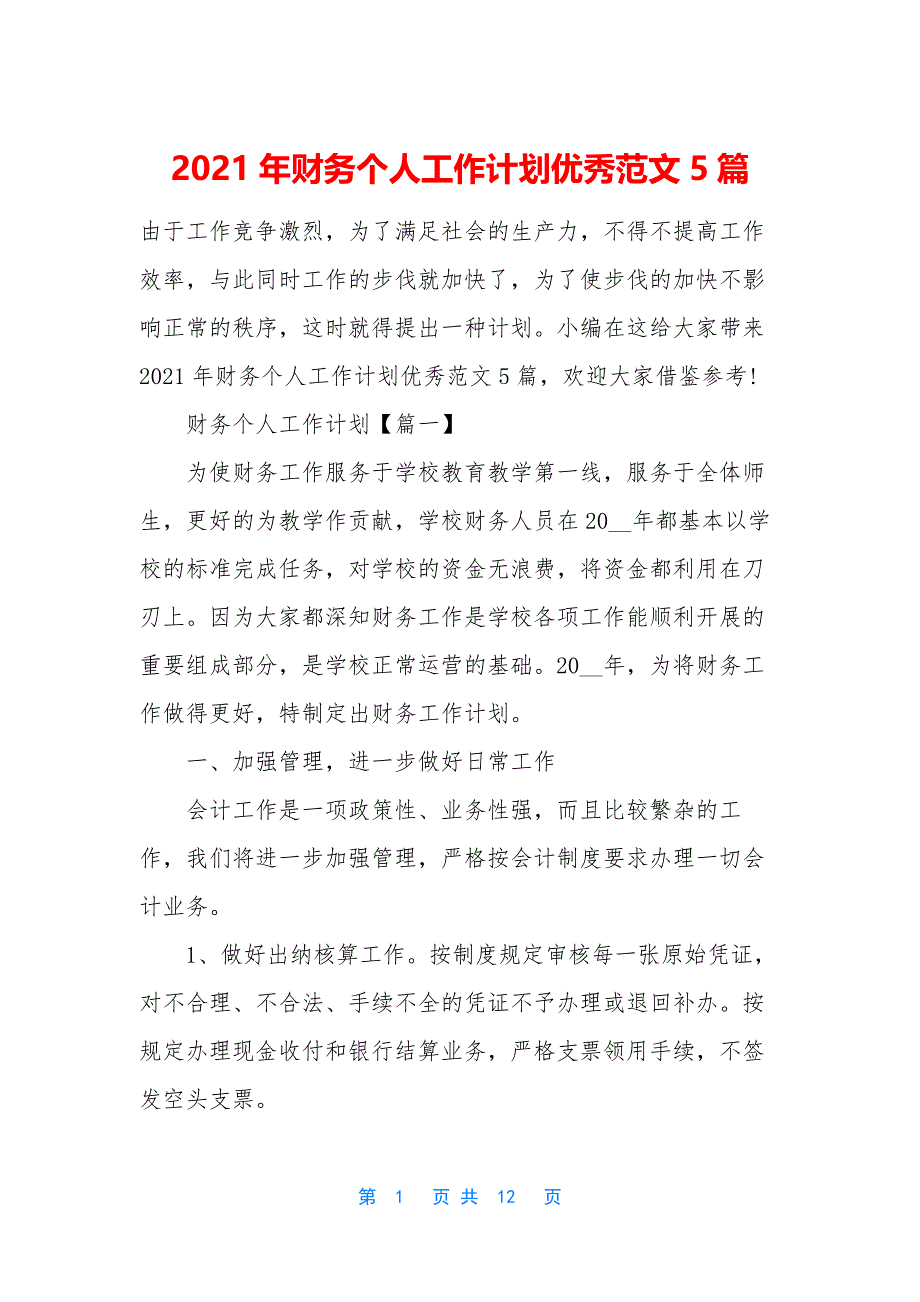 2021 年财务个人工作计划优秀范文 5 篇
由于工作竞争激烈，为了满足社会的生产力，不得不提高工作
效率，与此同时工作的步伐就加快了，为了使步伐的加快不影
响正常的秩序，这时就得提出一种计划。小编在这给大家带来
2021 年财务个人工作计划优秀范文 5 篇，欢迎大家借鉴参考!
财务个人工作计划【篇一】
为使财务工作服务于学校教育教学第一线，服务于全体师
生，更好的为教学作贡献，学校财务人员在 20__年都基本以学
校的标准完成任务，对学校的资金无浪费，将资金都利用在刀
刃上。因为大家都深知财务工作是学校各项工作能顺利开展的
重要组成部分，是学校正常运营的基础。20__年，为将财务工
作做得更好，特制定出财务工作计划。
一、加强管理，进一步做好日常工作
会计工作是一项政策性、业务性强，而且比较繁杂的工
作，我们将进一步加强管理，严格按会计制度要求办理一切会
计业务。
1、做好出纳核算工作。按制度规定审核每一张原始凭证，
对不合理、不合法、手续不全的凭证不予办理或退回补办。按
规定办理现金收付和银行结算业务，严格支票领用手续，不签
发空头支票。
第 1 页 共 12 页